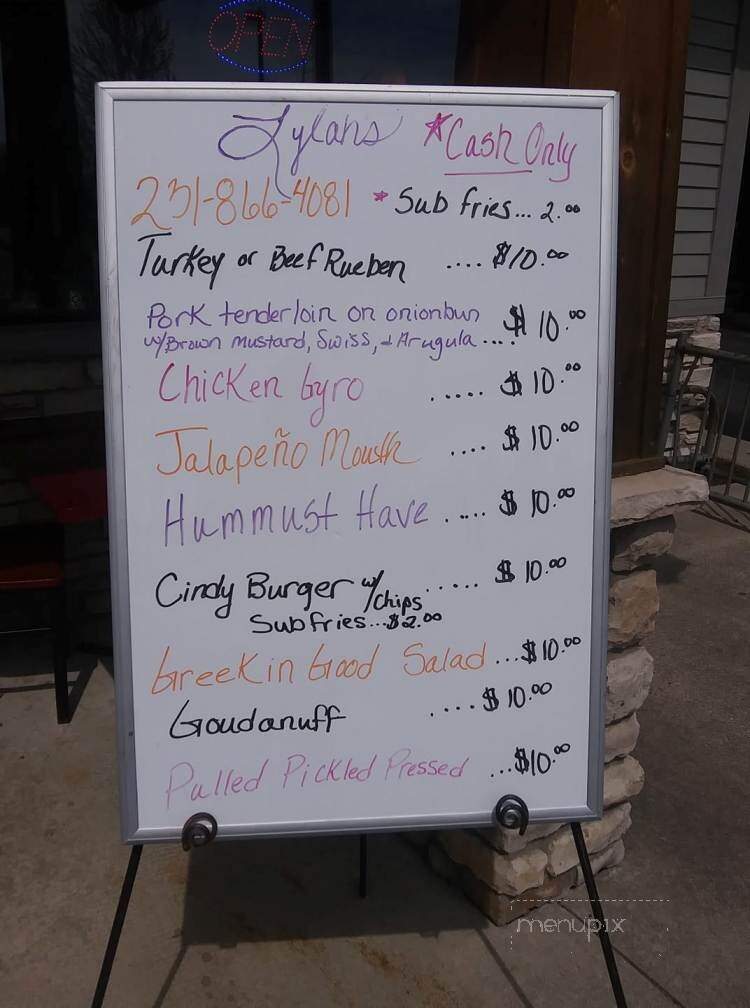 OPEN
Lylahs *Cash Only
231-866-4081 *Sub fries... 2.00
Turkey or Beef Rueben .... $10.00
Pork tenderloin on onionbun
w/Brown mustard, Swiss, + Arugula .... $10.00
Chicken Gyro ..... $10.00
Jalapeño Mouth .... $10.00
Hummust Have ..... $10.00
Cindy Burger w/chips ..... $10.00
Sub fries...$2.00
Greek in Good Salad ...$10.00
Goudanuff .... $10.00
Pulled Pickled Pressed ...$10.00
menupix